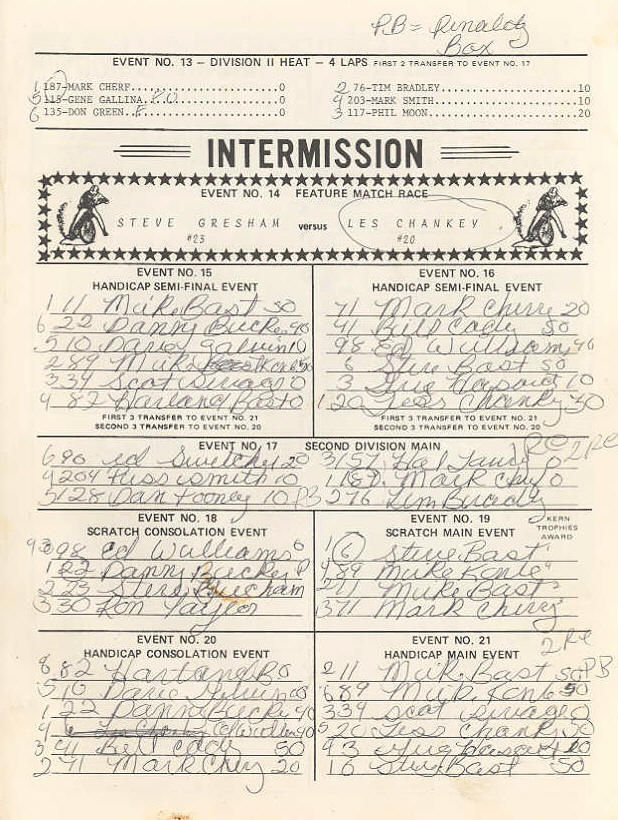 P.B = Rinaldy
Box
EVENT NO. 13 – DIVISION II HEAT – 4 LAPS FIRST 2 TRANSFER TO EVENT NO. 17
1 187-MARK CHERF..............0
2 76-TIM BRADLEY..............10
5 115-GENE GALLINA..............0
4 203-MARK SMITH..............10
6 135-DON GREEN..............0
3 117-PHIL MOON..............20
INTERMISSION
EVENT NO. 14 FEATURE MATCH RACE
STEVE GRESHAM versus LES CHANKEY
#23 #20
EVENT NO. 15
HANDICAP SEMI-FINAL EVENT
1 11 Mike Bast 50
6 22 Danny Becker 40
5 10 Dave Galvin 10
2 89 Mike Konle 50
3 34 Scot 0
4 82 Harland Bast 0
FIRST 3 TRANSFER TO EVENT NO. 21
SECOND 3 TRANSFER TO EVENT NO. 20
EVENT NO. 16
HANDICAP SEMI-FINAL EVENT
71 Mark Cherry 20
41 Bill Cody 50
98 Ed Williams 40
6 Steve Bast 50
3 10
1 20 Less Chanky 30
FIRST 3 TRANSFER TO EVENT NO. 21
SECOND 3 TRANSFER TO EVENT NO. 20
EVENT NO. 17 SECOND DIVISION MAIN
6 90 Ed Switcher 20
4 204 smith 10
5 128 Dan Tooney 10 PB
3 157 Hal 0
1 187 Mark 0
2 76 Tim
EVENT NO. 18
SCRATCH CONSOLATION EVENT
98 Ed Williams
1 22 Danny Becker
2 23 Steve
3 30 Ron Taylor
EVENT NO. 19
SCRATCH MAIN EVENT
KERN
TROPHIES
AWARD
1 6 Steve Bast
4 89 Mike Konle
2 11 Mike Bast
3 71 Mark Cherry
EVENT NO. 20
HANDICAP CONSOLATION EVENT
82 Harland B 0
5 10 Dave Galvin
1 22 Danny Becker 40
4
3 41 Bill Cody 50
2 71 Mark Chery 20
EVENT NO. 21
2 Re
HANDICAP MAIN EVENT
2 11 Mike Bast 50 PB
6 89 Mike Konle 50
3 34 Scot 0
5 20 Less Chanky 30
3
1 6 Steve Bast 50